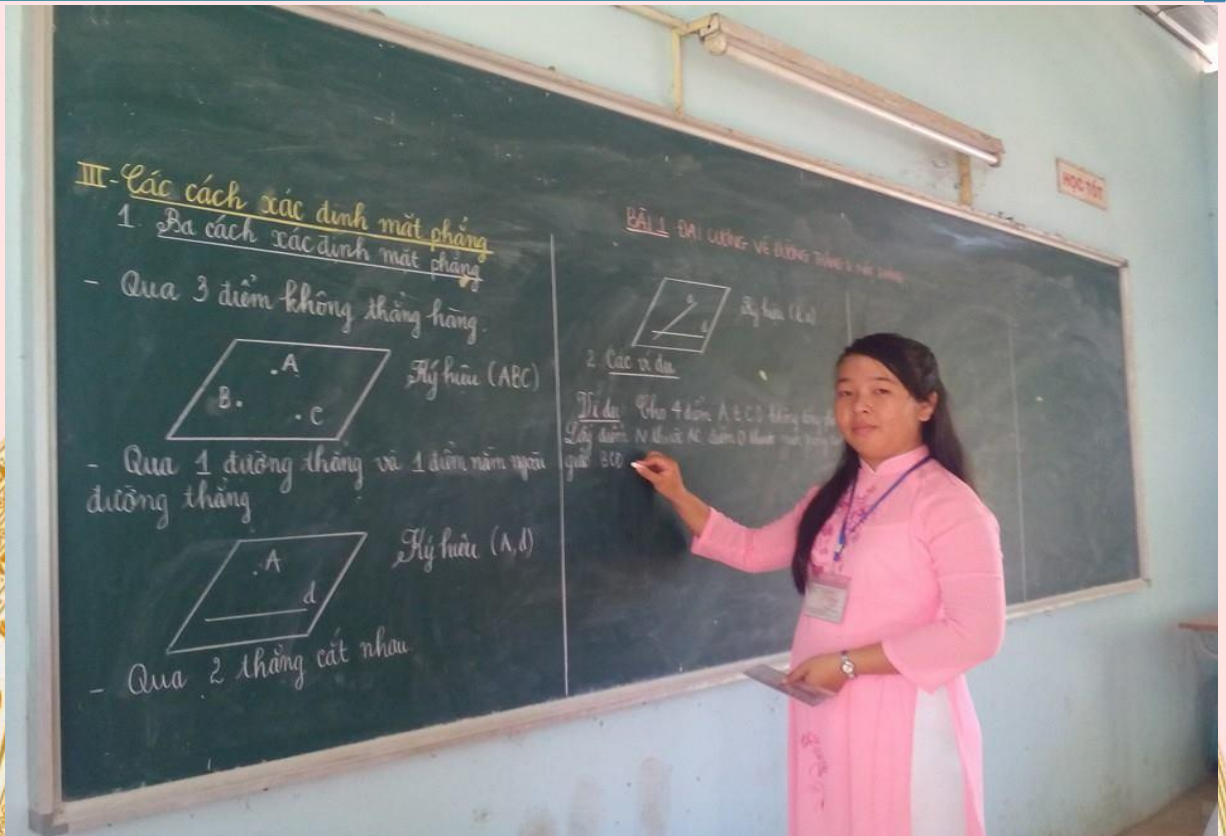 III- Các cách xác định mặt phẳng
1. Ba cách xác định mặt phẳng
- Qua 3 điểm không thẳng hàng.
A
B.
C
Ký hiệu (ABC)
- Qua 1 đường thẳng và 1 điểm nằm ngoài
đường thẳng
A
d
Ký hiệu (A,d)
- Qua 2 thẳng cắt nhau
BÀI 1 ĐẠI CƯƠNG VỀ ĐƯỜNG THẲNG
Ký hiệu
2. Các ví dụ
Ví dụ Cho 4 điểm A
Lấy điểm N thuộc AC điểm O thuộc
giác BCD
HỌC TỐT